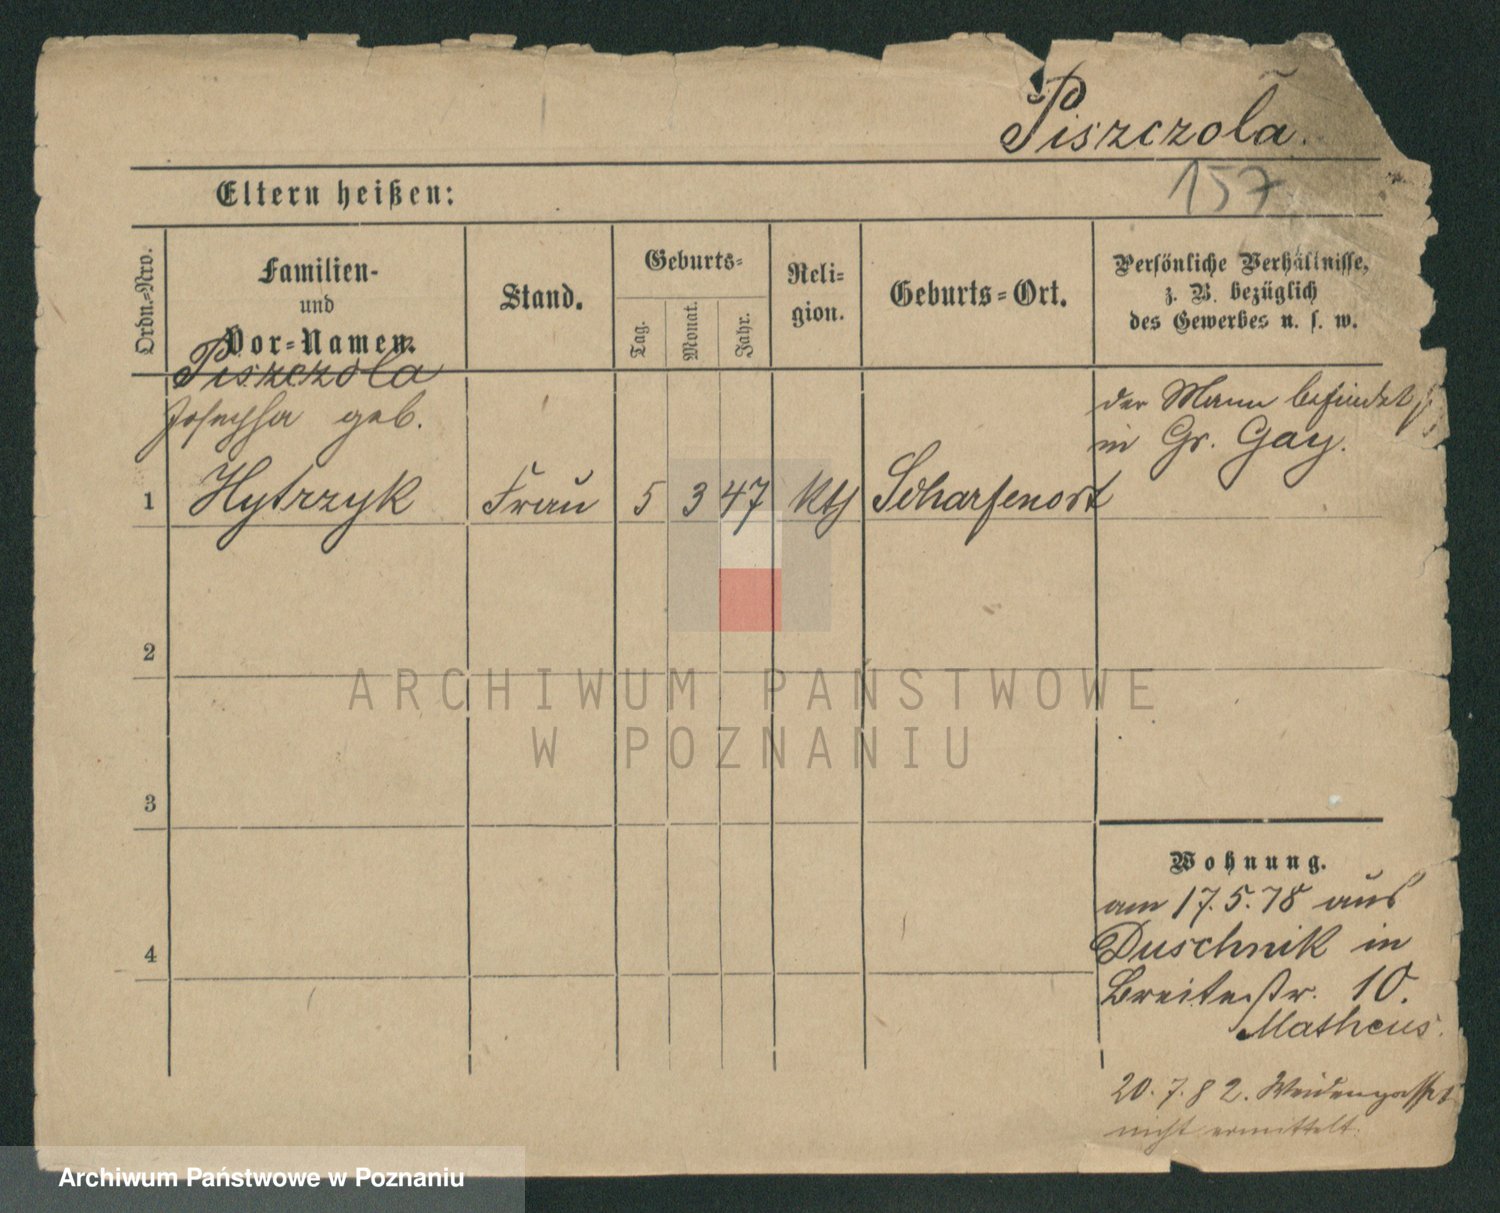 Piszczola.
157
Eltern heißen:
Ordn.=Nro.
Familien-
und
Vor=Namen.
Stand.
Geburts=
Tag.
Monat.
Jahr.
Reli=
gion.
Geburts=Ort.
Persönliche Verhältnisse,
z. B. bezüglich
des Gewerbes u. s. w.
Piszczola
Josepha geb.
1 Hytrzyk Frau 5 3 47 kth Scharfenort
der Mann befindet
in Gr. Gay.
2
3
4
Wohnung.
am 17.5.78 aus
Duschnik in
Breitestr. 10.
Matheus.
20.7.82. Weidengasse
nicht ermittelt.
ARCHIWUM PAŃSTWOWE
W POZNANIU
Archiwum Państwowe w Poznaniu